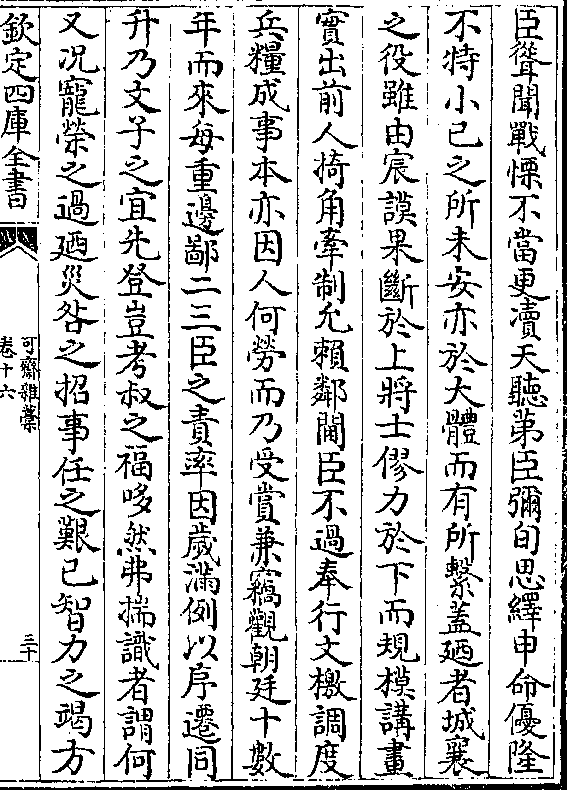 臣聳聞戰慄不當更瀆天聽苐臣彌旬思繹申命優隆
不特小己之所未安亦於大體而有所繫蓋廼者城襄
之役雖由宸謨果斷於上將士僇力於下而規模講畫
實出前人掎角牽制允賴鄰閫臣不過奉行文檄調度
兵糧成事本亦因人何勞而乃受賞兼竊觀朝廷十數
年而來每重邊鄙二三臣之責率因歲滿例以序遷同
升乃文子之宜先登豈考叔之福哆然弗揣識者謂何
又况寵榮之過廼災咎之招事任之艱已智力之竭方
欽定四庫全書
可齋雜藁
卷十六
三十